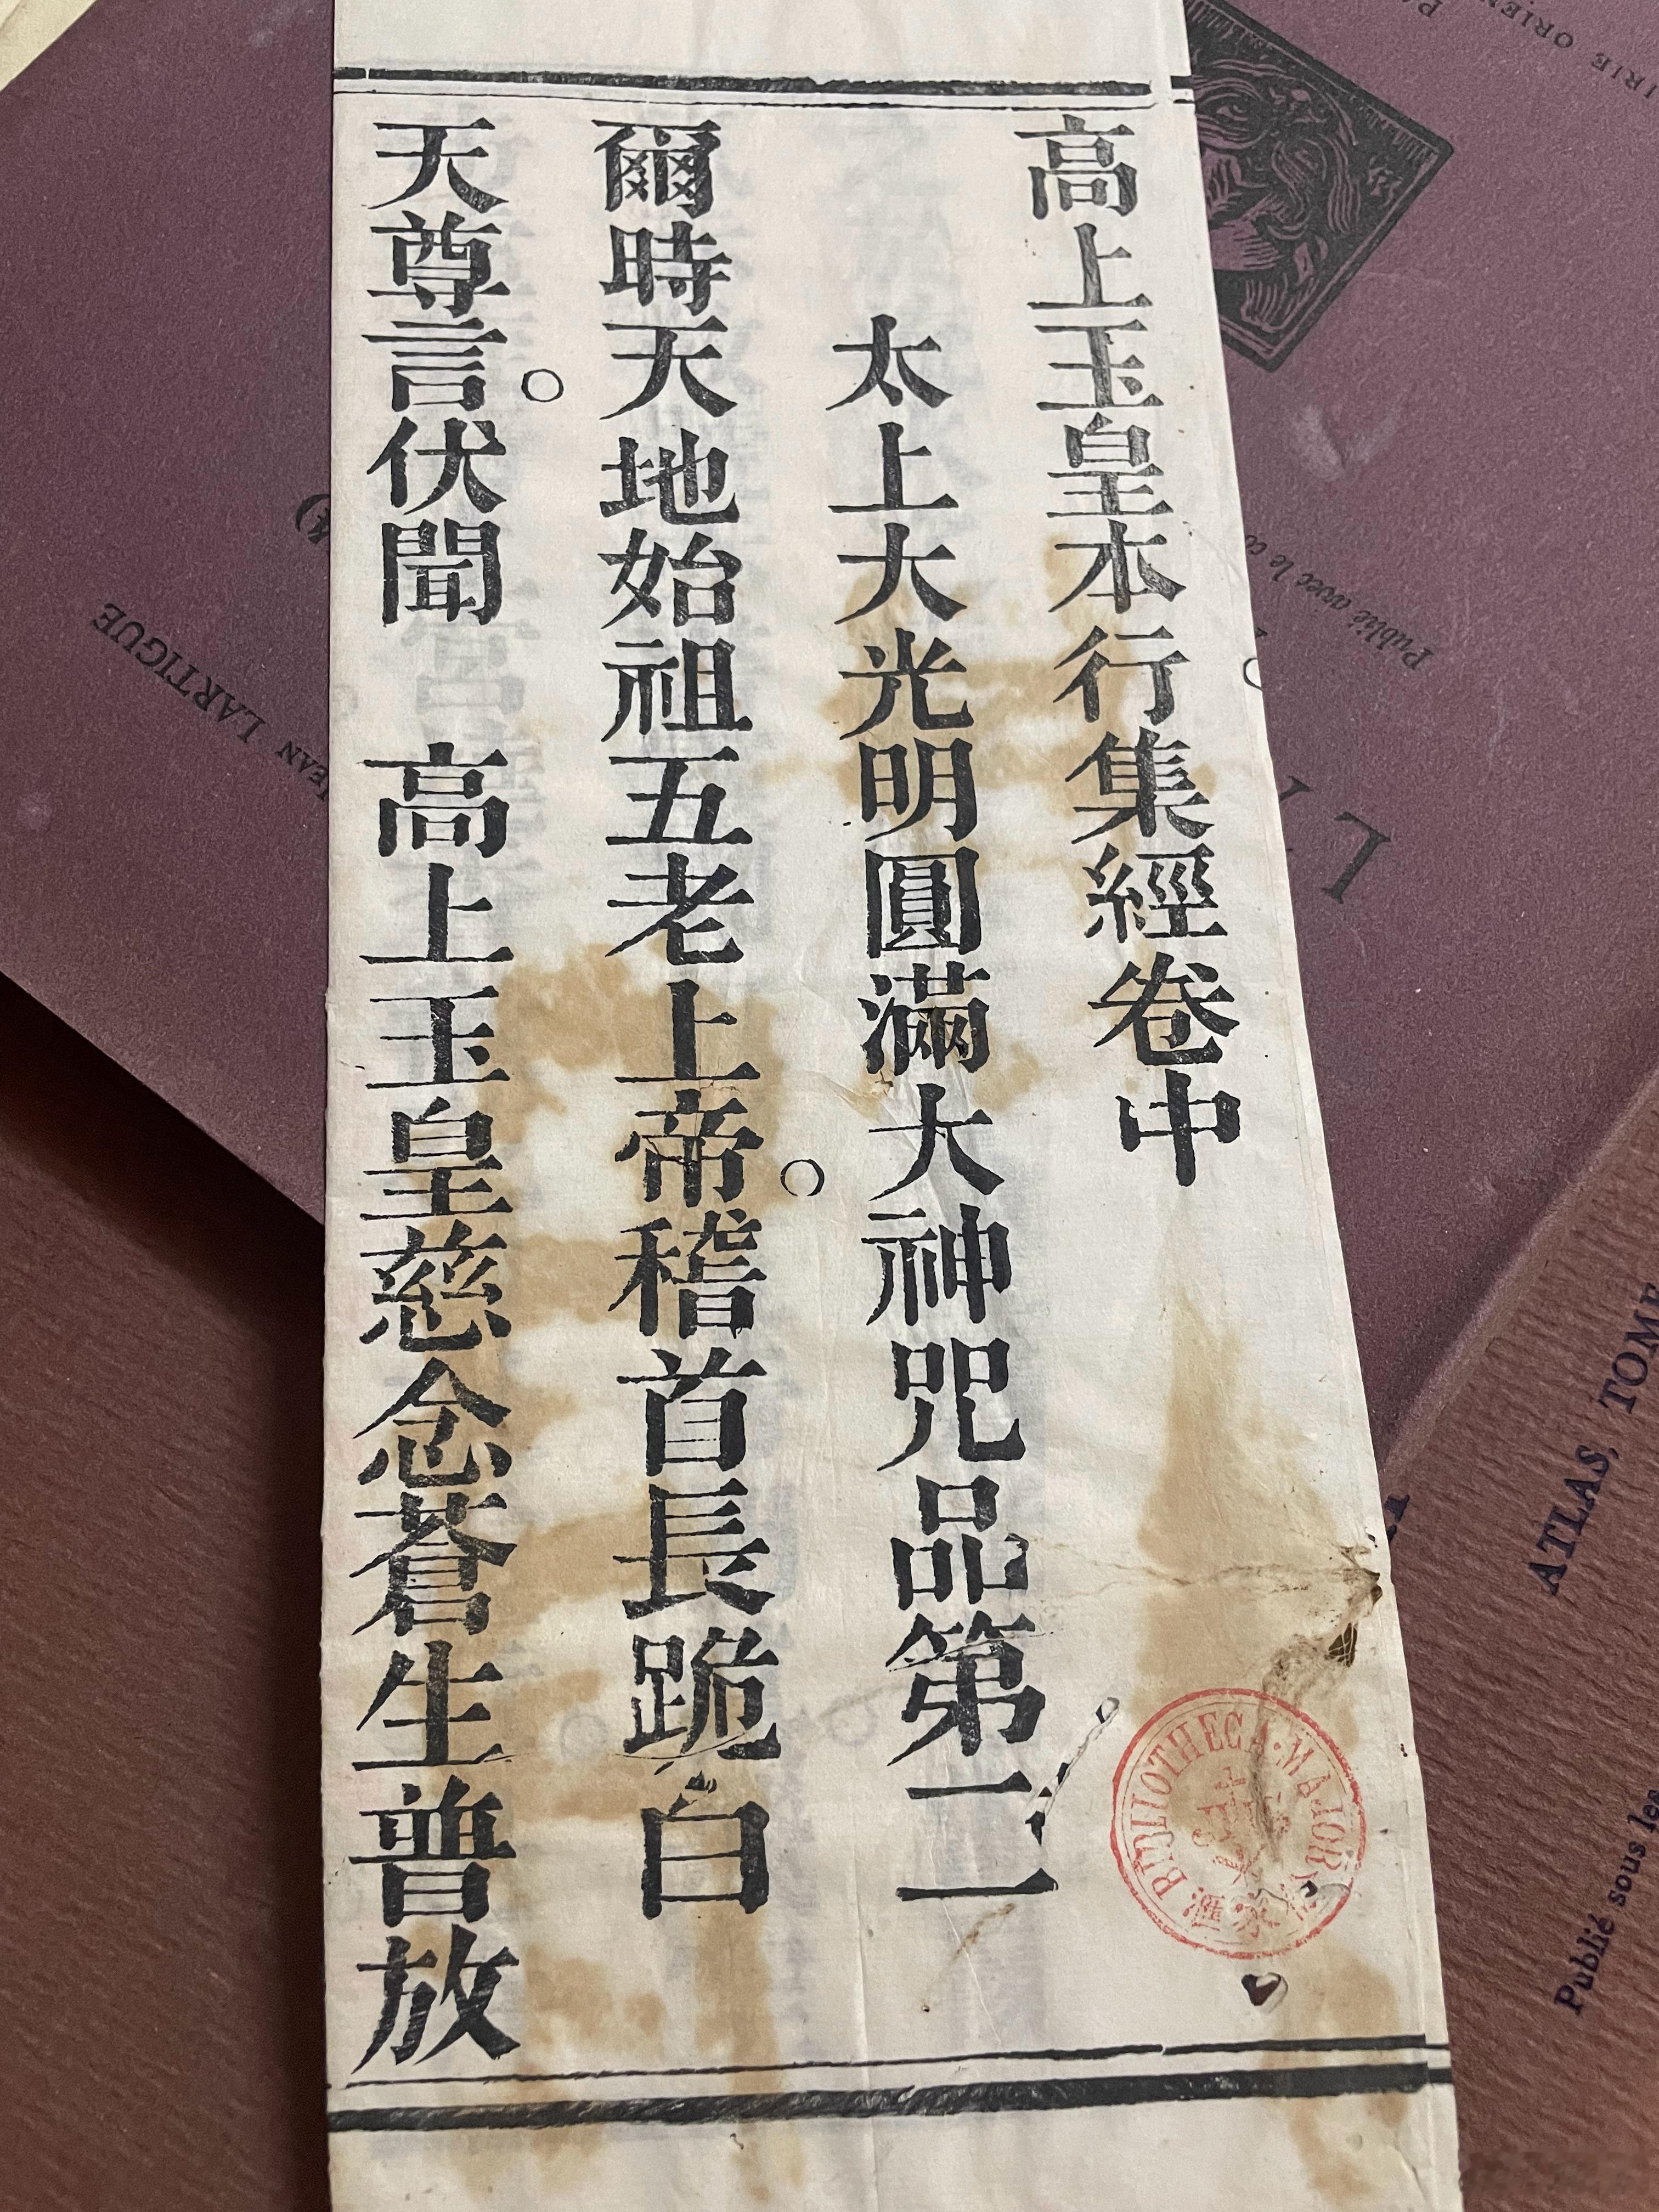 高上玉皇本行集經卷中
太上大光明圓滿大神咒品第二
爾時天地始祖五老上帝。稽首長跪白
天尊言。伏聞 高上玉皇慈念蒼生普放
BIBLIOTHECA·MAJOR
匯家
JEAN LARTIGUE
Publié avec le co
ATLAS, TOME
Publié sous les